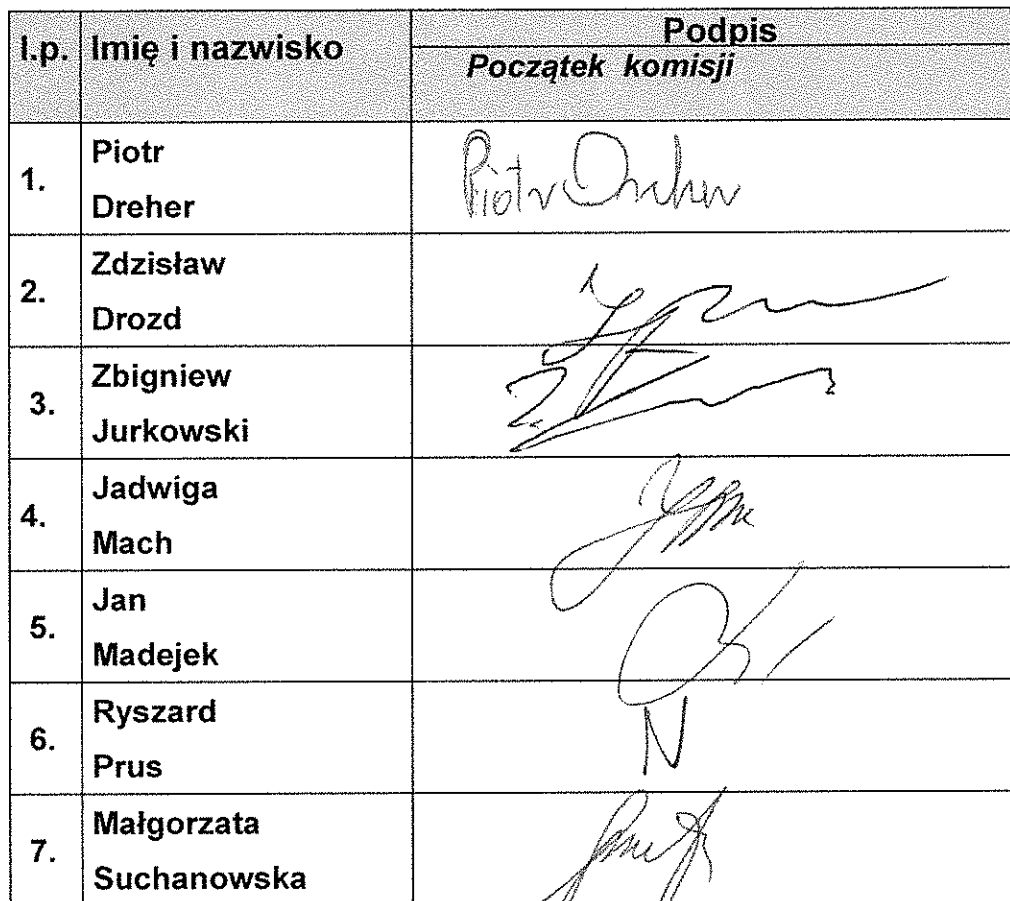 l.p. Imię i nazwisko Podpis
Początek komisji
1. Piotr
Dreher
Piotr Dreher
2. Zdzisław
Drozd
3. Zbigniew
Jurkowski
4. Jadwiga
Mach
5. Jan
Madejek
6. Ryszard
Prus
7. Małgorzata
Suchanowska